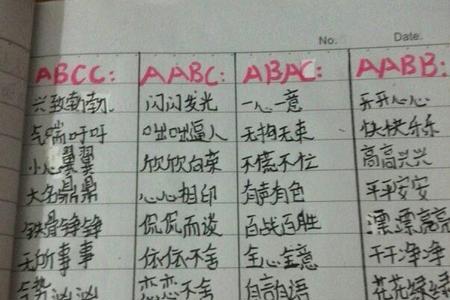 No. Date.
ABCC: AABC: ABAC: AABB:
兴致勃勃 闪闪发光 一心一意 开开心心
气喘吁吁 咄咄逼人 无拘无束 快快乐乐
小心翼翼 欣欣向荣 不慌不忙 高高兴兴
大名鼎鼎 心心相印 有声有色 平平安安
铁骨铮铮 侃侃而谈 百战百胜 漂漂亮亮
无所事事 依依不舍 全心全意 干干净净
恋恋不舍 自言自语 花花绿绿